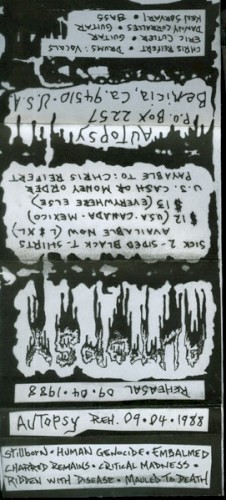 REHEASAL 09·04·1988
AUTOPSY
SICK 2-SIDED BLACK T-SHIRTS
AVAILABLE NOW (L & XL)
$12 (USA·CANADA·MEXICO)
$15 (EVERYWHERE ELSE)
U.S. CASH OR MONEY ORDER
PAYABLE TO: CHRIS REIFERT
AUTOPSY
P.O. BOX 2257
BENICIA, CA. 94510·U.S.A
CHRIS REIFERT · DRUMS, VOCALS
ERIC CUTLER · GUITAR
DANNY CORALLES · GUITAR
KEN SORVARI · BASS
AUTOPSY REH. 09·04·1988
STILLBORN · HUMAN GENOCIDE · EMBALMED
CHARRED REMAINS · CRITICAL MADNESS ·
RIDDEN WITH DISEASE · MAULED TO DEATH